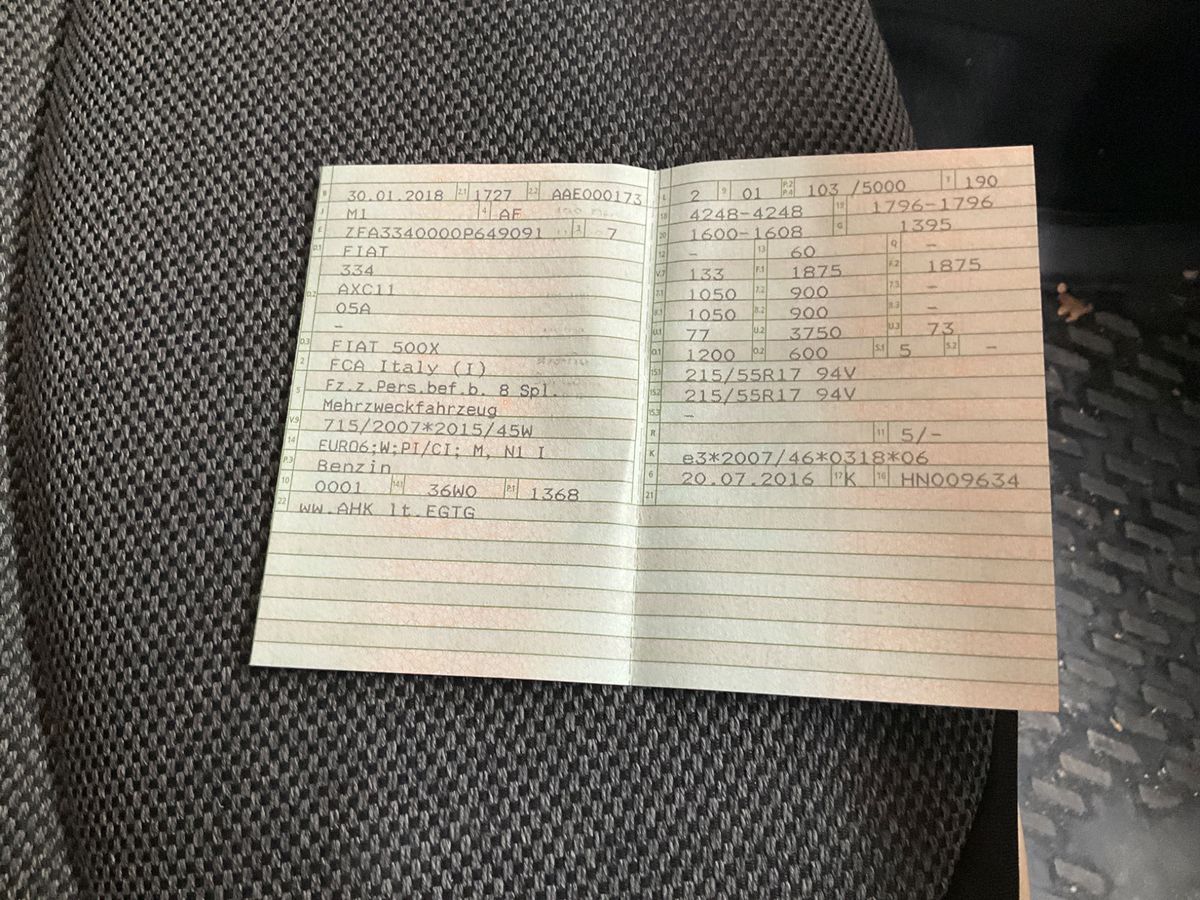 B 30.01.2018 2.1 1727 2.2 AAE000173
J M1 4 AF
E ZFA3340000P649091 3 7
D.1 FIAT
334
D.2 AXC11
05A
–
D.3 FIAT 500X
2 FCA Italy (I)
5 Fz.z.Pers.bef.b. 8 Spl.
Mehrzweckfahrzeug
V.9 715/2007*2015/45W
14 EURO6;W;PI/CI; M, N1 I
P.3 Benzin
10 0001 14.1 36W0 P.1 1368
22 ww.AHK lt.EGTG
L 2 9 01 P.2 P.4 103 /5000 T 190
18 4248-4248 19 1796-1796
20 1600-1608 G 1395
12 – 13 60 Q –
V.7 133 F.1 1875 F.2 1875
7.1 1050 7.2 900 7.3 –
8.1 1050 8.2 900 8.3 –
U.1 77 U.2 3750 U.3 73
O.1 1200 O.2 600 S.1 5 S.2 –
15.1 215/55R17 94V
15.2 215/55R17 94V
15.3 –
R 11 5/-
K e3*2007/46*0318*06
6 20.07.2016 17 K 16 HN009634
21